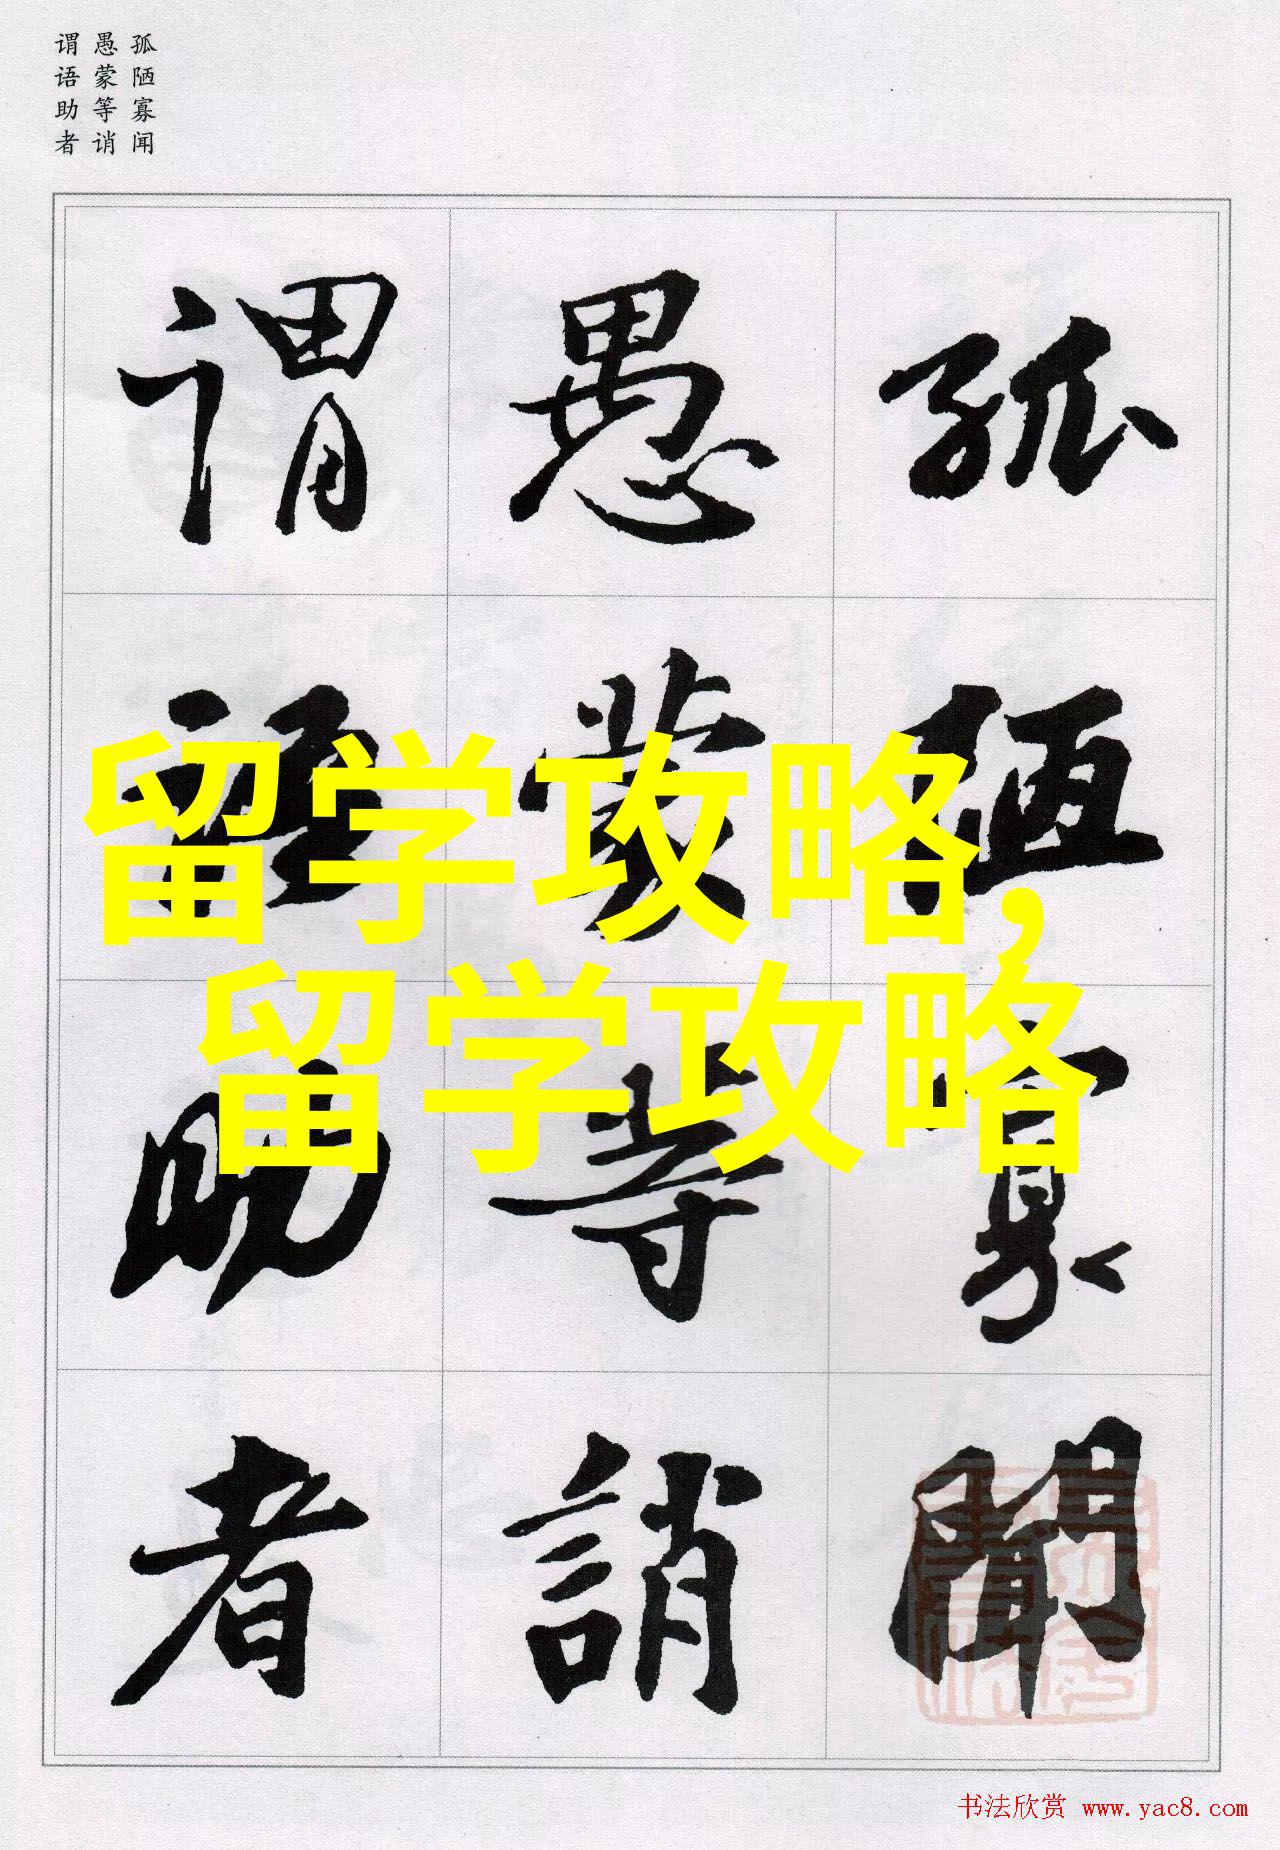 孤陋寡闻
愚蒙等诮
谓语助者
孤陋寡聞
愚蒙等誚
謂語助者
留学攻略,
留学攻略
书法欣赏 www.yac8.com